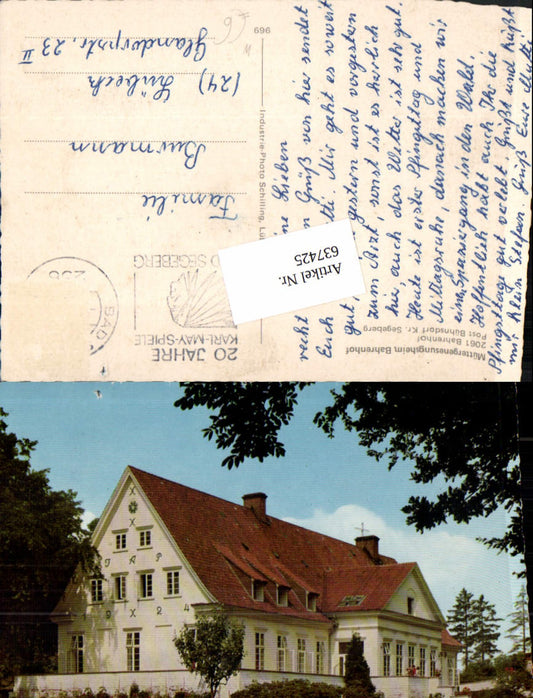 Meine Lieben
recht Grüß von hier sendet
Euch Mutti. Mir geht es soweit
gut, gestern und vorgestern
zum Arzt, sonst ist es herrlich
hier, auch das Wetter ist sehr gut.
Heute ist erster Pfingsttag und
Mittagsruhe, danach machen wir
einen Spaziergang in den Wald.
Hoffentlich habt auch Ihr die
Pfingsttage gut verlebt. Grüßt und küßt
mir klein Stefan Grüß Euer Mutti
Müttergenesungsheim Bahrenhof
2061 Bahrenhof
Post Bühnsdorf Kr. Segeberg
Industrie-Photo Schilling, Lü
969
20 JAHRE
KARL-MAY-SPIELE
D SEGEBERG
BAD
236
Familie
Burmann
(24) Lübeck
Glandorpstr. 23 II
66
Artikel Nr.
637425
JAP
1924